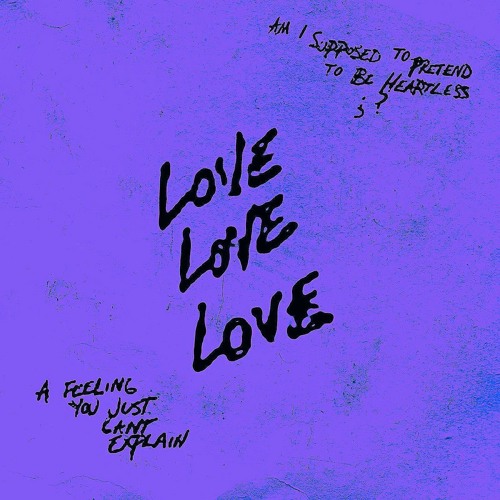 AM I
SUPPOSED TO PRETEND
TO BE HEARTLESS
;?
LOVE
LOVE
LOVE
A FEELING
YOU JUST
CANT
EXPLAIN